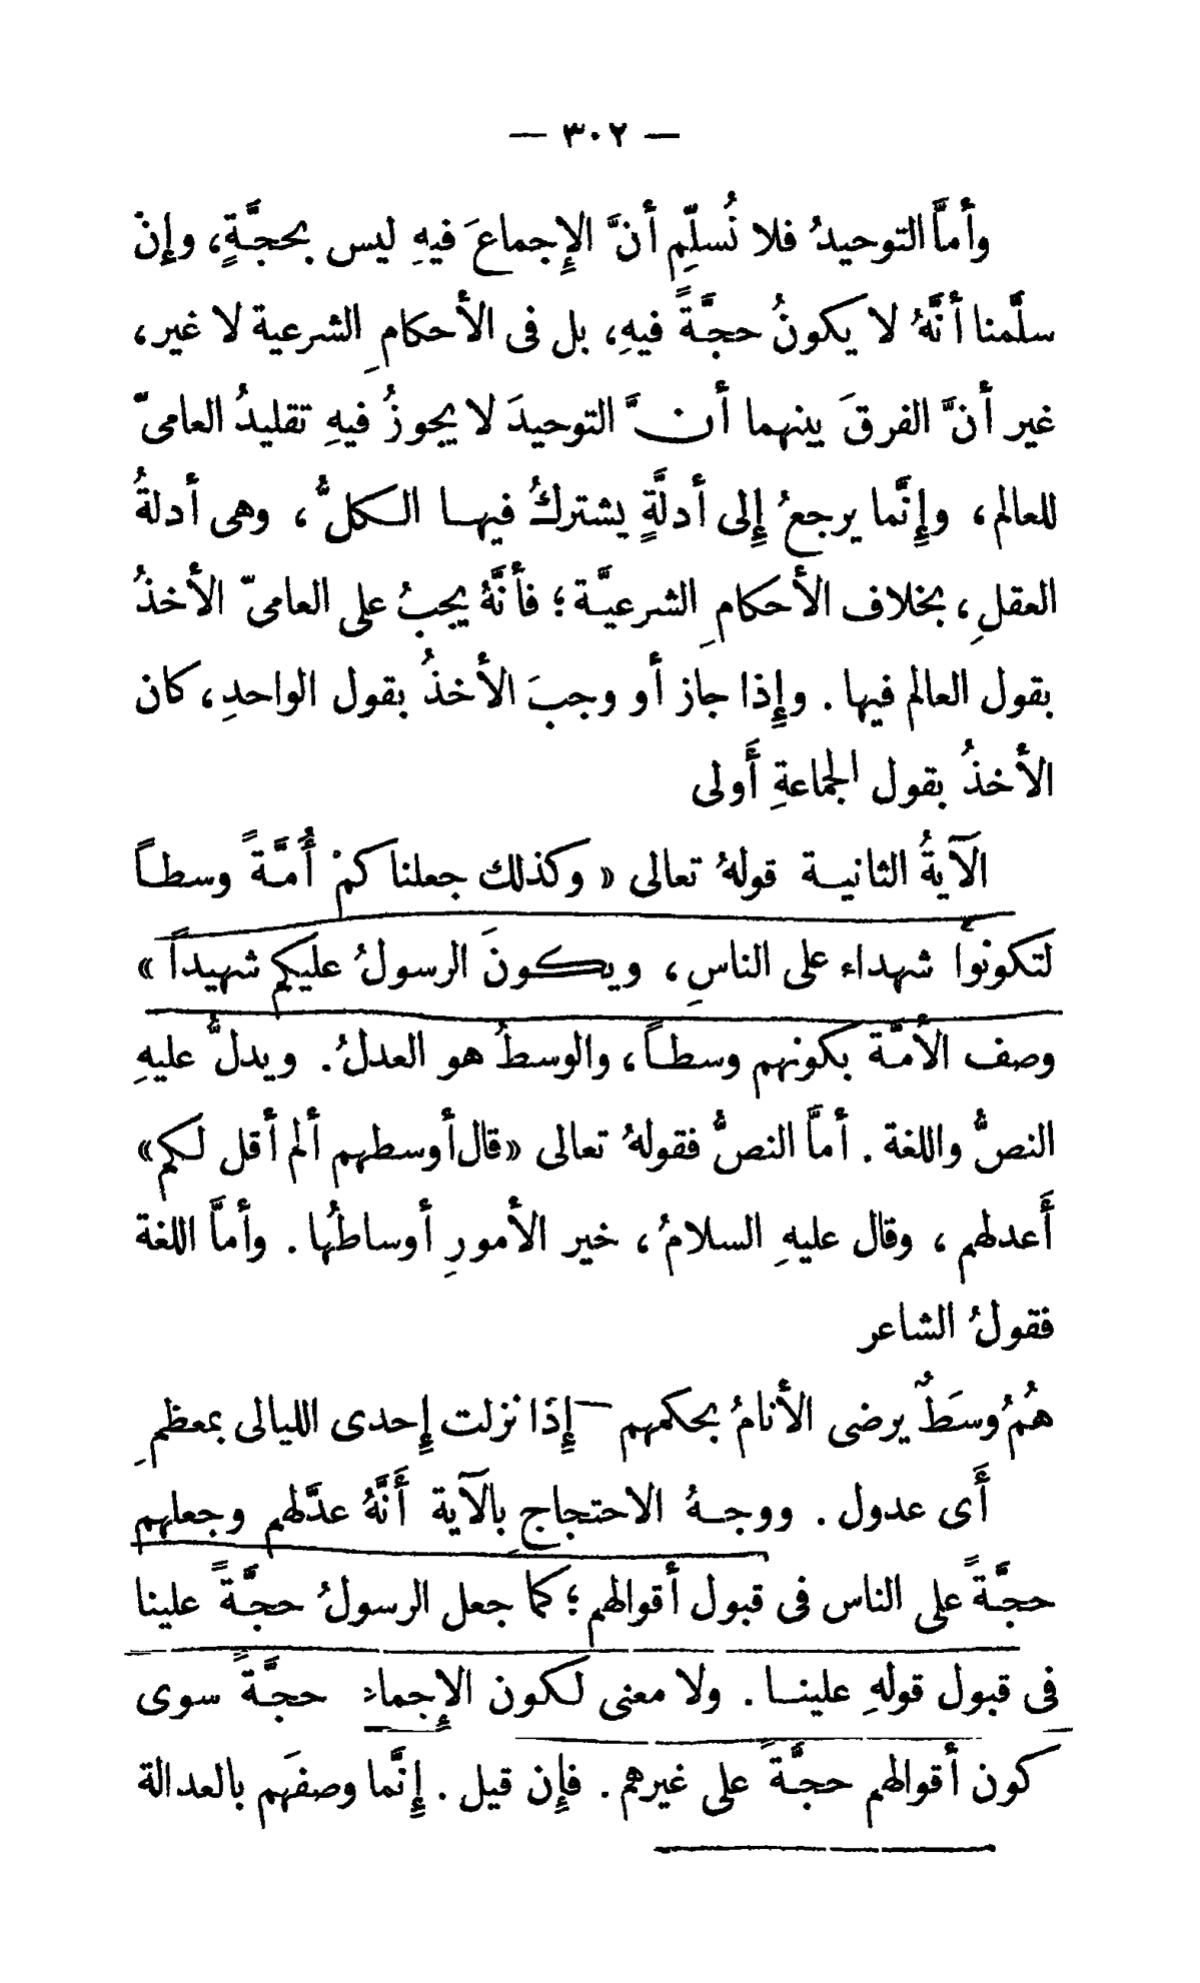 — ٣٠٢ —
وأمَّا التوحيدُ فلا نُسلّمِ أنَّ الإجماعَ فيهِ ليس بحجَّةٍ، وإنْ
سلَّمنا أنَّهُ لا يكونُ حجَّةً فيهِ، بل فى الأحكامِ الشرعية لا غير،
غير أنَّ الفرقَ بينهما أنَّ التوحيدَ لا يجوزُ فيهِ تقليدُ العامىّ
للعالم، وإنَّما يرجعُ إلى أدلَّةٍ يشتركُ فيها الكلُّ، وهى أدلةُ
العقلِ، بخلاف الأحكامِ الشرعيَّة؛ فأنَّهُ يجبُ على العامىّ الأخذُ
بقول العالم فيها . وإذا جاز أو وجبَ الأخذُ بقول الواحدِ، كان
الأخذُ بقول الجماعةِ أَولى
الآيةُ الثانية قولهُ تعالى « وكذلك جعلناكمْ أُمَّةً وسطاً
لتكونوا شهداء على الناسِ، ويكونَ الرسولُ عليكم شهيداً »
وصف الأمَّة بكونهم وسطاً، والوسطُ هو العدلُ. ويدلُّ عليهِ
النصُّ واللغة . أمَّا النصُّ فقولهُ تعالى « قال أوسطهم ألم أقل لكم »
أَعدلهم، وقال عليهِ السلامُ، خير الأمورِ أوساطُها . وأمَّا اللغة
فقولُ الشاعر
همُ وسَطٌ يرضى الأنامُ بحكمهم – إذَا نزلت إحدى الليالى بمعظمِ
أَى عدول . ووجهُ الاحتجاجِ بالآية أَنَّهُ عدَّلهم وجعلهم
حجَّةً على الناس فى قبول أقوالهم؛ كما جعل الرسولُ حجَّةً علينا
فى قبول قولهِ علينا . ولا معنى لكون الإجماع حجَّةً سوى
كون أقوالهم حجَّةً على غيرهم . فإن قيل . إنَّما وصفَهم بالعدالة